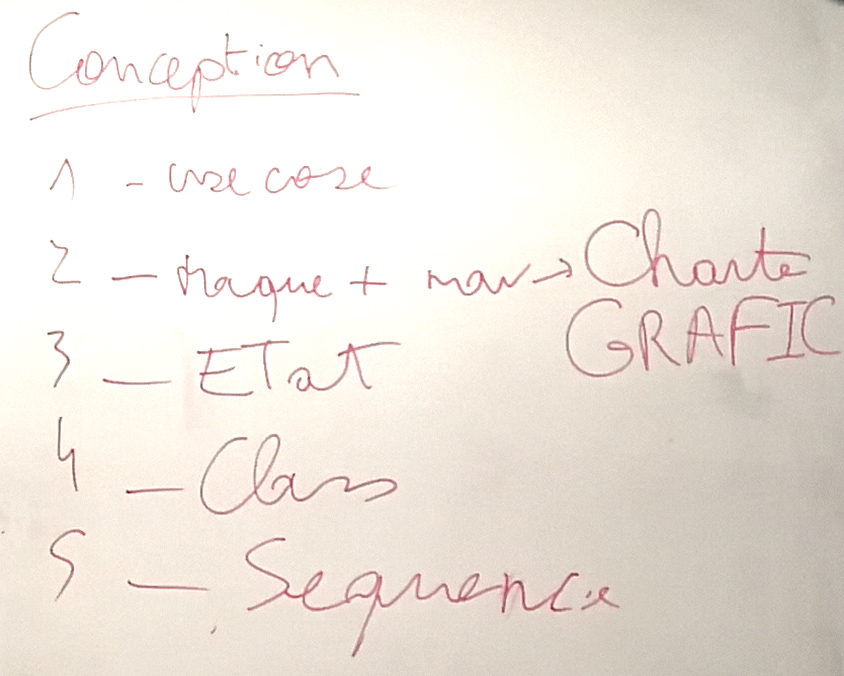 Conception
1 - use case
2 - maque + nav -> Charte
GRAFIC
3 - ETat
4 - Class
5 - Sequence